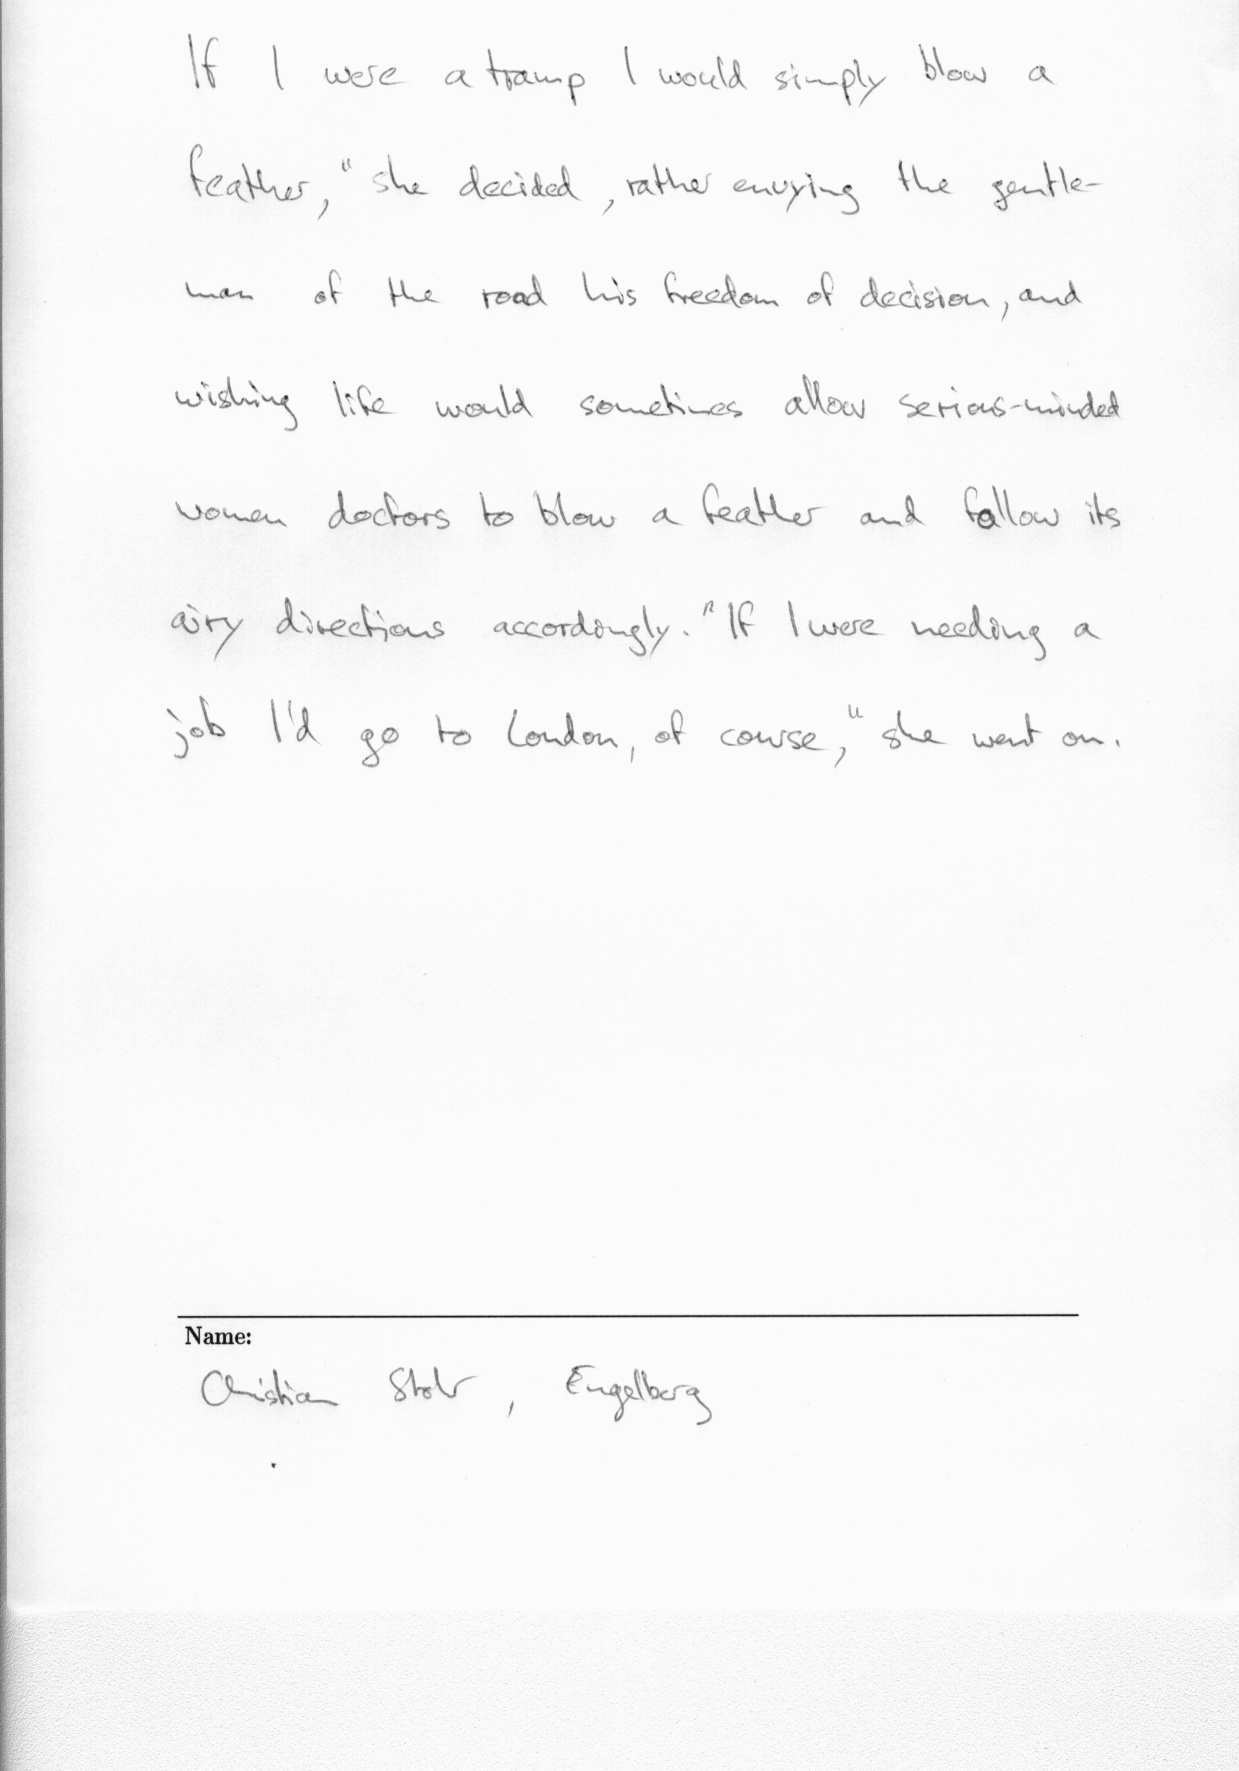 If I were a tramp I would simply blow a
feather," she decided, rather envying the gentle-
man of the road his freedom of decision, and
wishing life would sometimes allow serious-minded
women doctors to blow a feather and follow its
airy directions accordingly. "If I were needing a
job I'd go to London, of course," she went on.
Name:
Christian Stohr, Engelberg